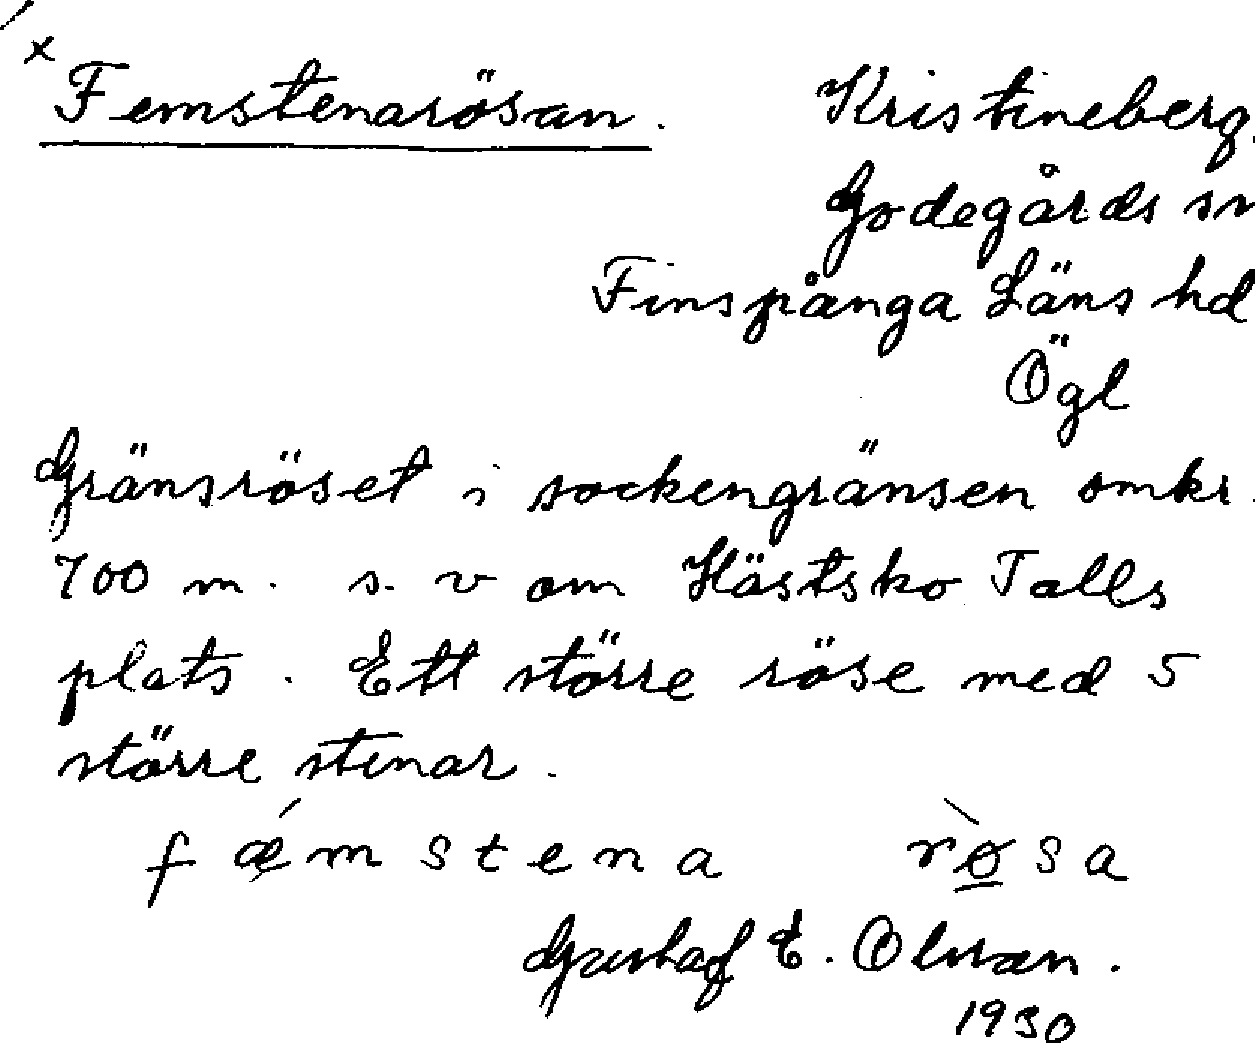 x Femstenarösan. Kristineberg.
Godegårds sn
Finspånga Läns hd
Ögl
Gränsröset i sockengränsen omkr.
700 m. s. v om Hästsko Talls
plats. Ett större röse med 5
större stenar.
fǽmstena rø̀sa
Gustaf E. Olsson.
1930